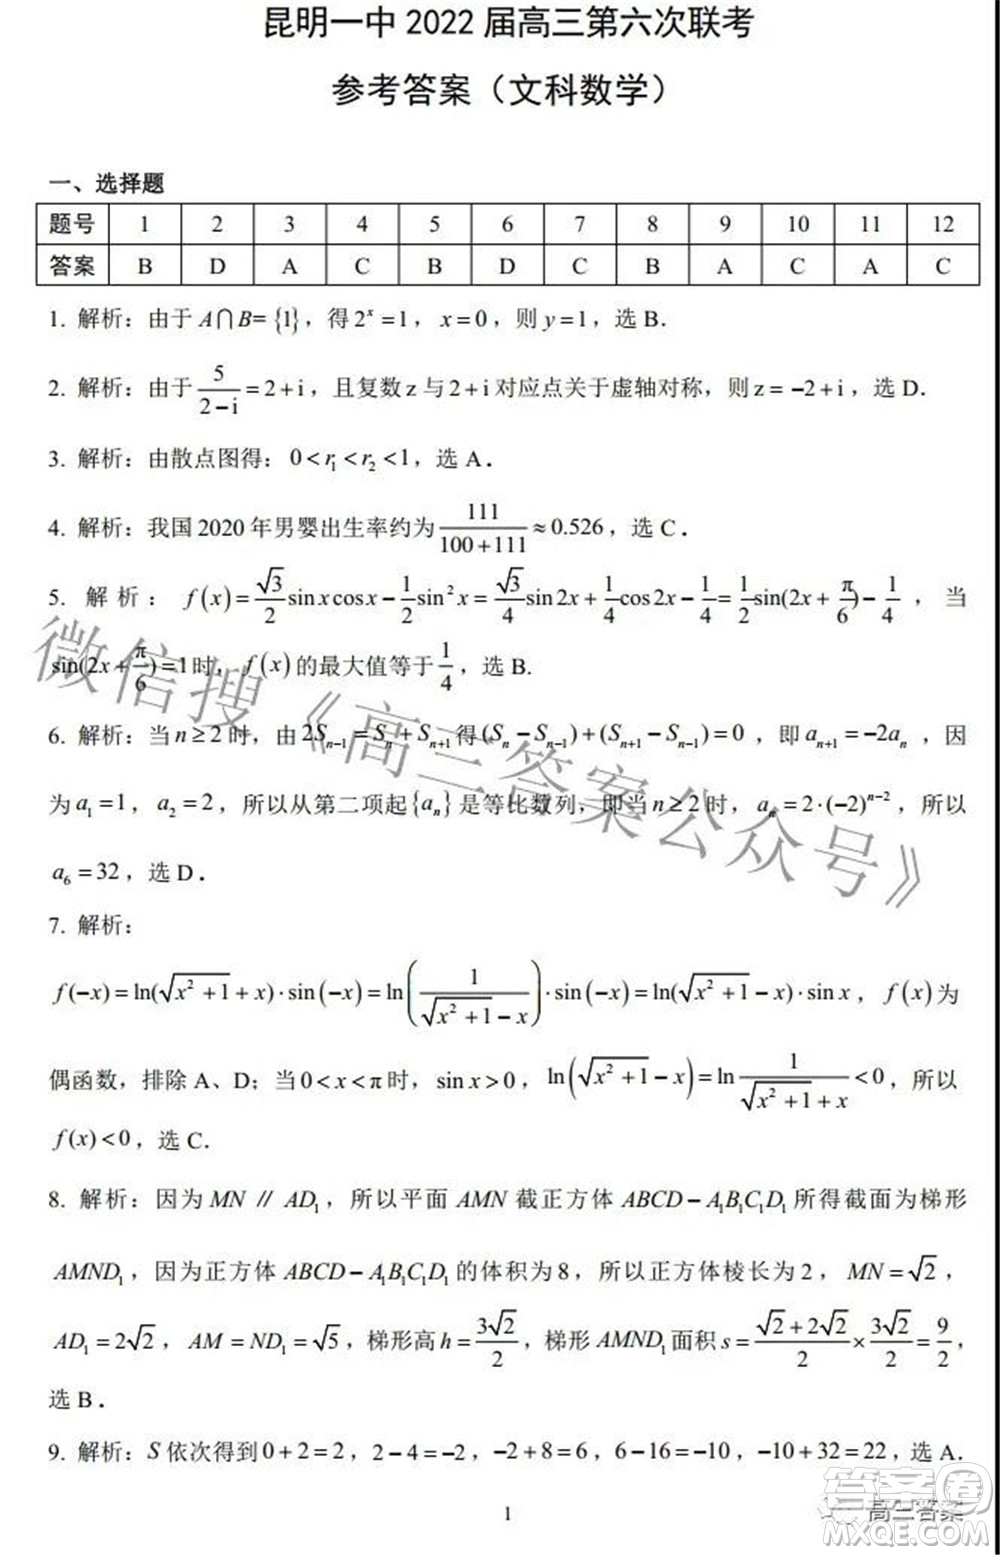 昆明一中 2022 届高三第六次联考
参考答案（文科数学）
一、选择题
题号 1 2 3 4 5 6 7 8 9 10 11 12
答案 B D A C B D C B A C A C
1. 解析：由于 A∩B={1}，得 2^x=1，x=0，则 y=1，选 B．
2. 解析：由于 5/(2-i)=2+i，且复数 z 与 2+i 对应点关于虚轴对称，则 z=-2+i，选 D．
3. 解析：由散点图得：0<r₁<r₂<1，选 A．
4. 解析：我国 2020 年男婴出生率约为 111/(100+111)≈0.526，选 C．
5. 解析：f(x)=√3/2 sin x cos x-1/2 sin² x=√3/4 sin2x+1/4 cos2x-1/4=1/2 sin(2x+π/6)-1/4，当
sin(2x+π/6)=1时，f(x)的最大值等于 1/4，选 B.
6. 解析：当 n≥2 时，由 2Sₙ₋₁=Sₙ+Sₙ₊₁ 得 (Sₙ-Sₙ₋₁)+(Sₙ₊₁-Sₙ₋₁)=0，即 aₙ₊₁=-2aₙ，因
为 a₁=1，a₂=2，所以从第二项起{aₙ}是等比数列，即当 n≥2 时，aₙ=2·(-2)^(n-2)，所以
a₆=32，选 D．
7. 解析：
f(-x)=ln(√(x²+1)+x)·sin(-x)=ln(1/(√(x²+1)-x))·sin(-x)=ln(√(x²+1)-x)·sin x，f(x)为
偶函数，排除 A、D；当 0<x<π 时，sin x>0，ln(√(x²+1)-x)=ln 1/(√(x²+1)+x)<0，所以
f(x)<0，选 C．
8. 解析：因为 MN // AD₁，所以平面 AMN 截正方体 ABCD-A₁B₁C₁D₁ 所得截面为梯形
AMND₁，因为正方体 ABCD-A₁B₁C₁D₁ 的体积为 8，所以正方体棱长为 2，MN=√2，
AD₁=2√2，AM=ND₁=√5，梯形高 h=3√2/2，梯形 AMND₁ 面积 s=(√2+2√2)/2×3√2/2=9/2，
选 B．
9. 解析：S 依次得到 0+2=2，2-4=-2，-2+8=6，6-16=-10，-10+32=22，选 A．
1
微信搜《高三答案公众号》
高三答案
答案圈
MXQE.COM